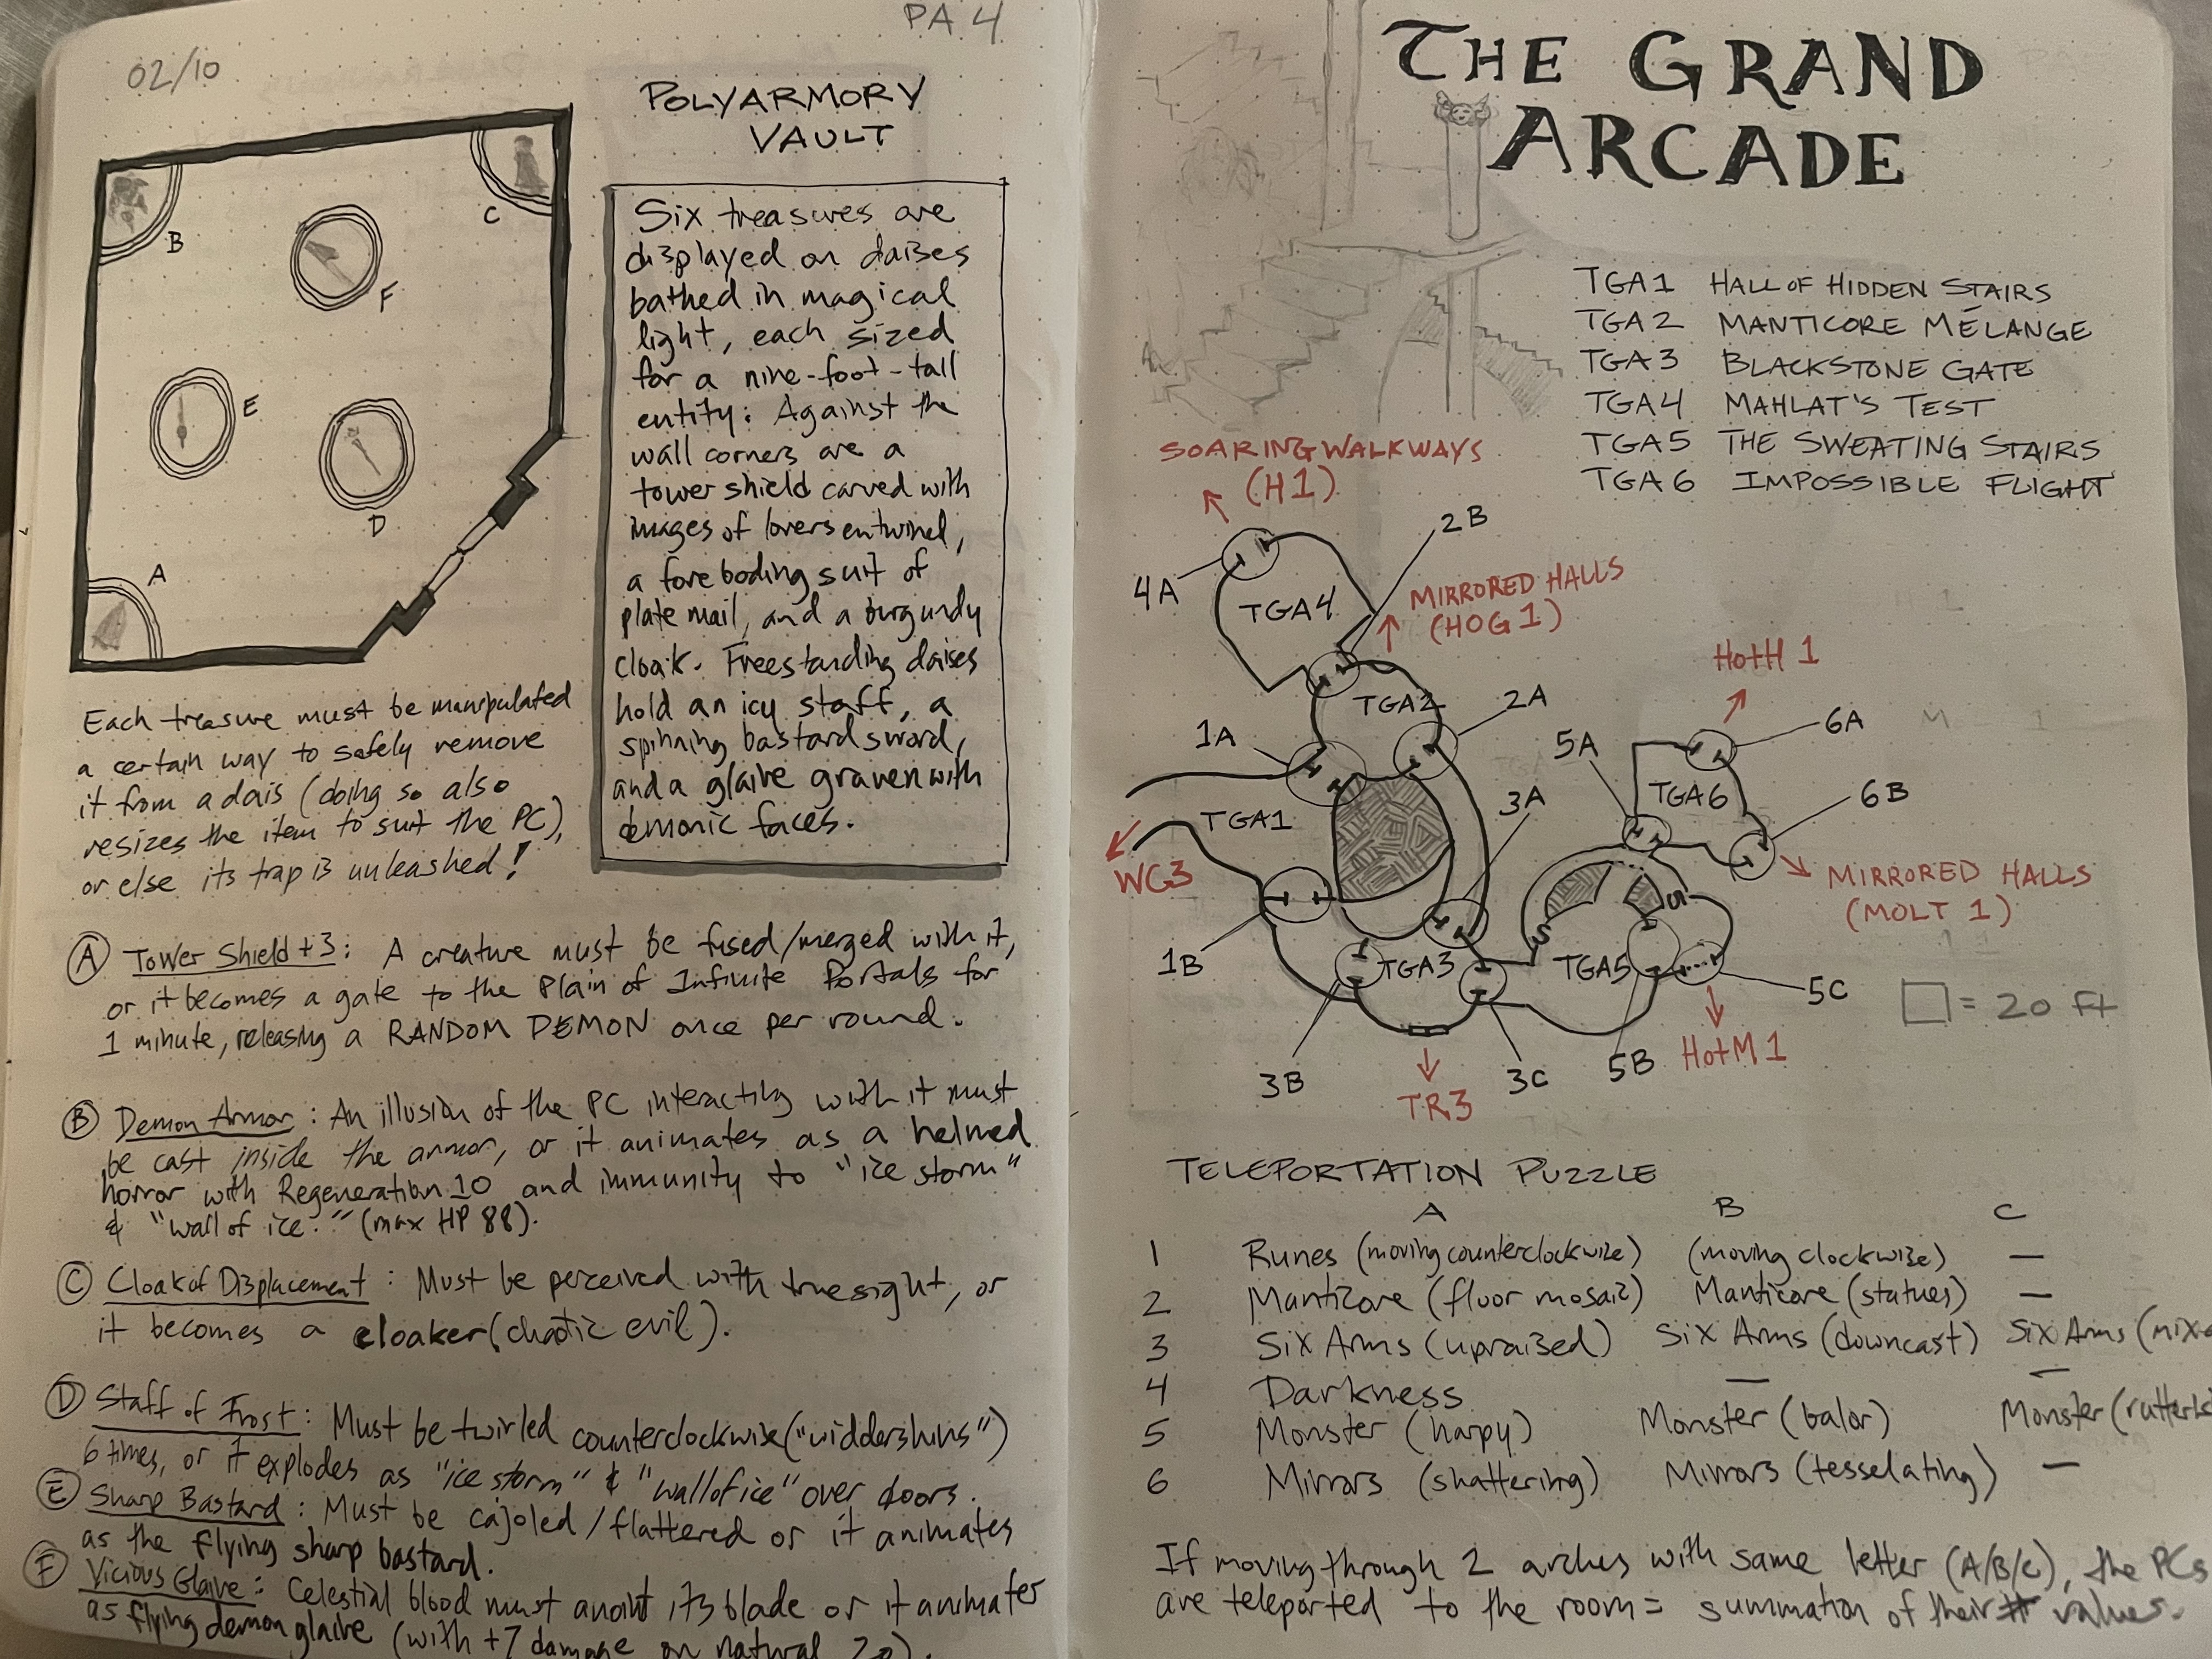 02/10
PA 4
POLYARMORY
VAULT
B
C
F
E
D
A
Six treasures are
displayed on daises
bathed in magical
light, each sized
for a nine-foot-tall
entity: Against the
wall corners are a
tower shield carved with
images of lovers entwined,
a foreboding suit of
plate mail, and a burgundy
cloak. Freestanding daises
hold an icy staff, a
spinning bastard sword,
and a glaive graven with
demonic faces.
Each treasure must be manipulated
a certain way to safely remove
it from a dais (doing so also
resizes the item to suit the PC),
or else its trap is unleashed!
A Tower Shield +3: A creature must be fused/merged with it,
or it becomes a gate to the Plain of Infinite Portals for
1 minute, releasing a RANDOM DEMON once per round.
B Demon Armor: An illusion of the PC interacting with it must
be cast inside the armor, or it animates as a helmed
horror with Regeneration 10 and immunity to "ice storm"
& "wall of ice." (max HP 88).
C Cloak of Displacement: Must be perceived with truesight, or
it becomes a cloaker (chaotic evil).
D Staff of Frost: Must be twirled counterclockwise ("widdershins")
6 times, or it explodes as "ice storm" & "wall of ice" over doors.
E Sharp Bastard: Must be cajoled/flattered or it animates
as the flying sharp bastard.
F Vicious Glaive: Celestial blood must anoint its blade or it animates
as flying demon glaive (with +7 damage on natural 20).
THE GRAND
ARCADE
TGA1 HALL OF HIDDEN STAIRS
TGA2 MANTICORE MÉLANGE
TGA3 BLACKSTONE GATE
TGA4 MAHLAT'S TEST
TGA5 THE SWEATING STAIRS
TGA6 IMPOSSIBLE FLIGHT
SOARING WALKWAYS
(H1)
2B
4A
TGA4
MIRRORED HALLS
(HOG 1)
HotH 1
TGA2
2A
1A
5A
6A
TGA6
3A
6B
TGA1
WG3
MIRRORED HALLS
(MOLT 1)
S
S
1B
TGA3
TGA5
5C
□ = 20 ft
3B
TR3
3C
5B
HotM 1
TELEPORTATION PUZZLE
A B C
1 Runes (moving counterclockwise) (moving clockwise) —
2 Manticore (floor mosaic) Manticore (statues) —
3 Six Arms (upraised) Six Arms (downcast) Six Arms (mix
4 Darkness — —
5 Monster (harpy) Monster (balor) Monster (rutterk
6 Mirrors (shattering) Mirrors (tesselating) —
If moving through 2 arches with same letter (A/B/C), the PCs
are teleported to the room = summation of their # values.